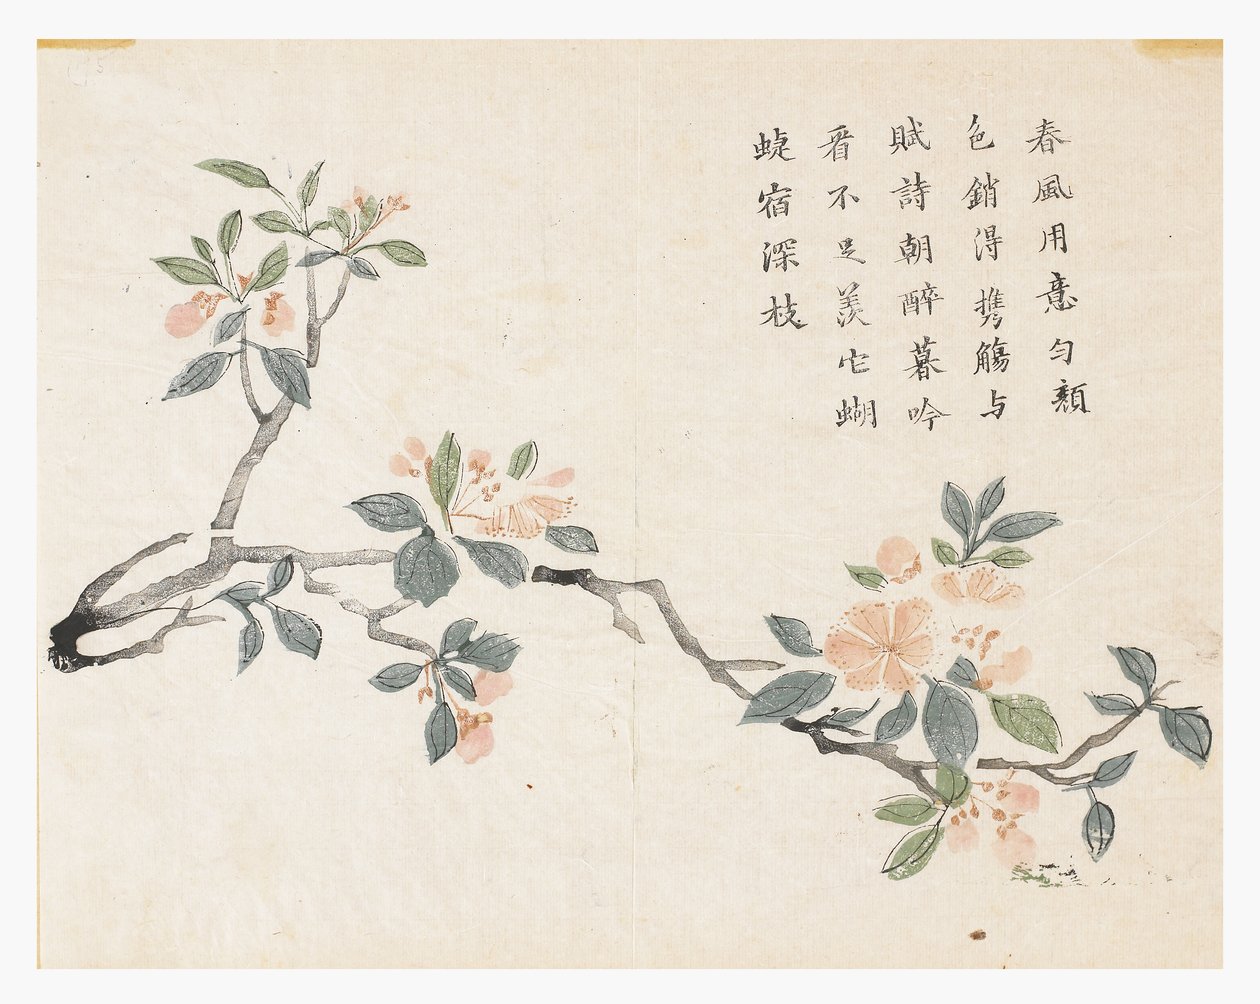 春風用意勻顏
色銷得携觴与
賦詩朝醉暮吟
看不足羨它蝴
蜨宿深枝